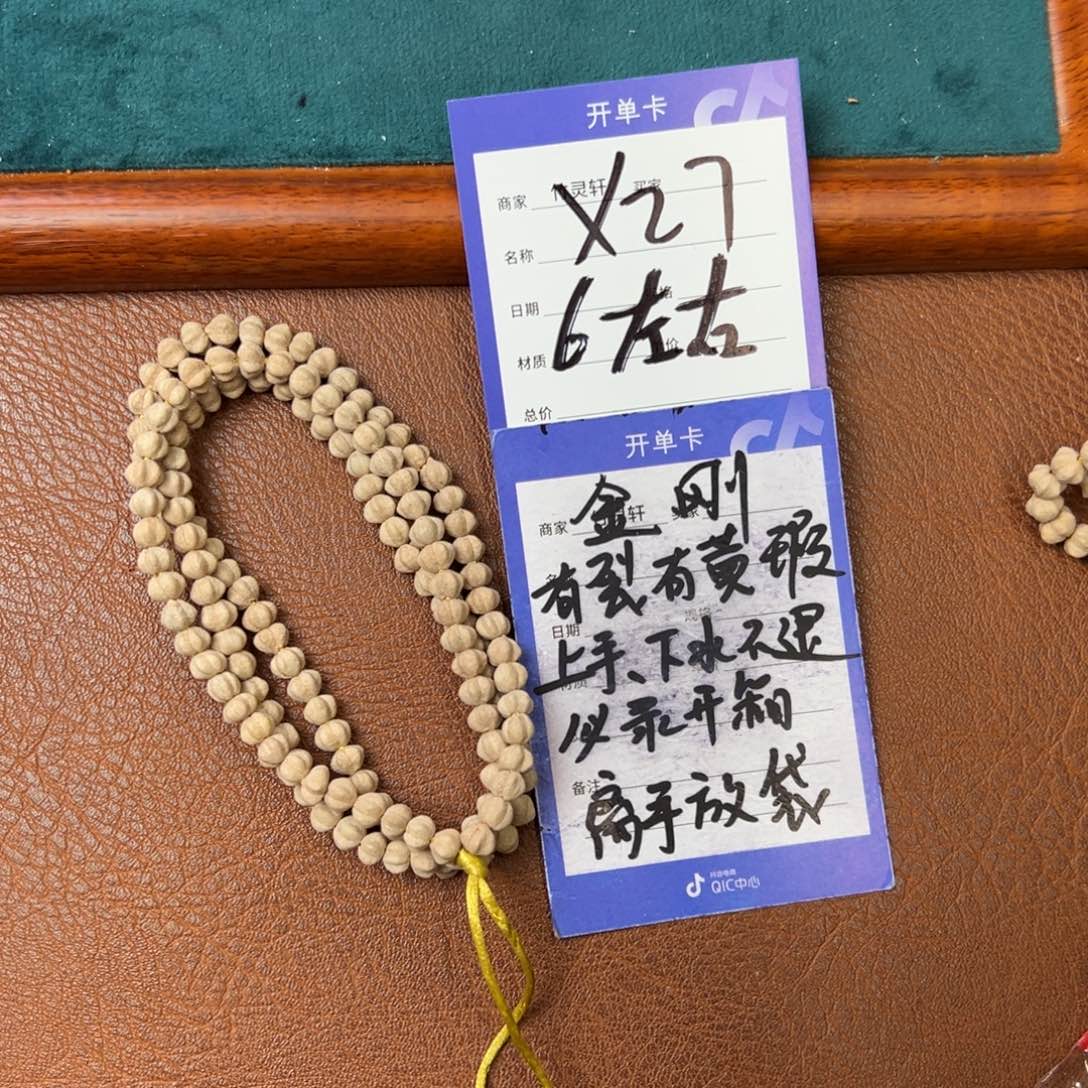 开单卡
商家 灵轩 买家
X27
名称
日期
6左右
材质
总价
开单卡
商家 轩
金刚
有裂有黄瑕
日期
上手、下水不退
材质
必录开箱
备注
离手放袋
抖音电商
QIC中心